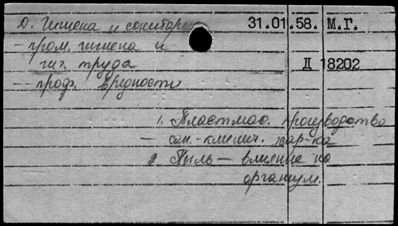 Д. Гигиена и санитария 31.01.58. М.Г.
- пром. гигиена и
гиг. труда Д 18202
- проф. вредности
1. Пластмас. производства
- сан.-гигиен. хар-ка
2. Пыль — влияние на
организм.